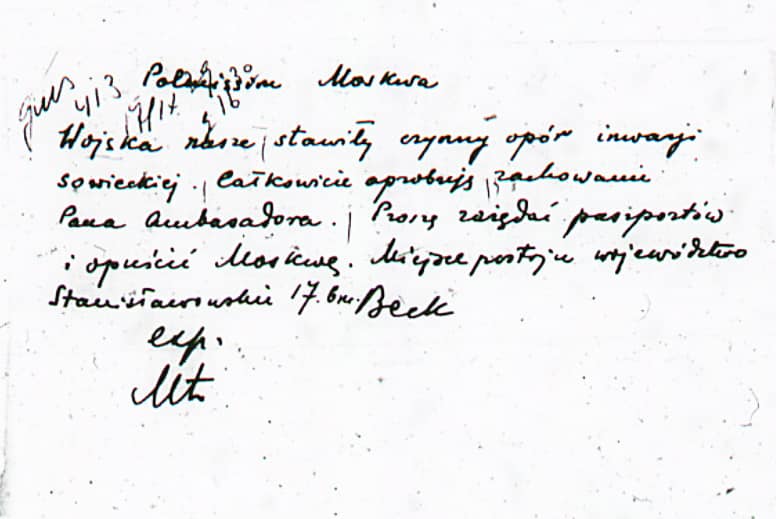 Polmission Moskwa
413
Wojska nasze stawiły czynny opór inwazji
sowieckiej. Całkowicie aprobuję zachowanie
Pana Ambasadora. Proszę zażądać paszportów
i opuścić Moskwę. Miejsce postoju województwo
Stanisławowskie 17. bm. Beck
exp.